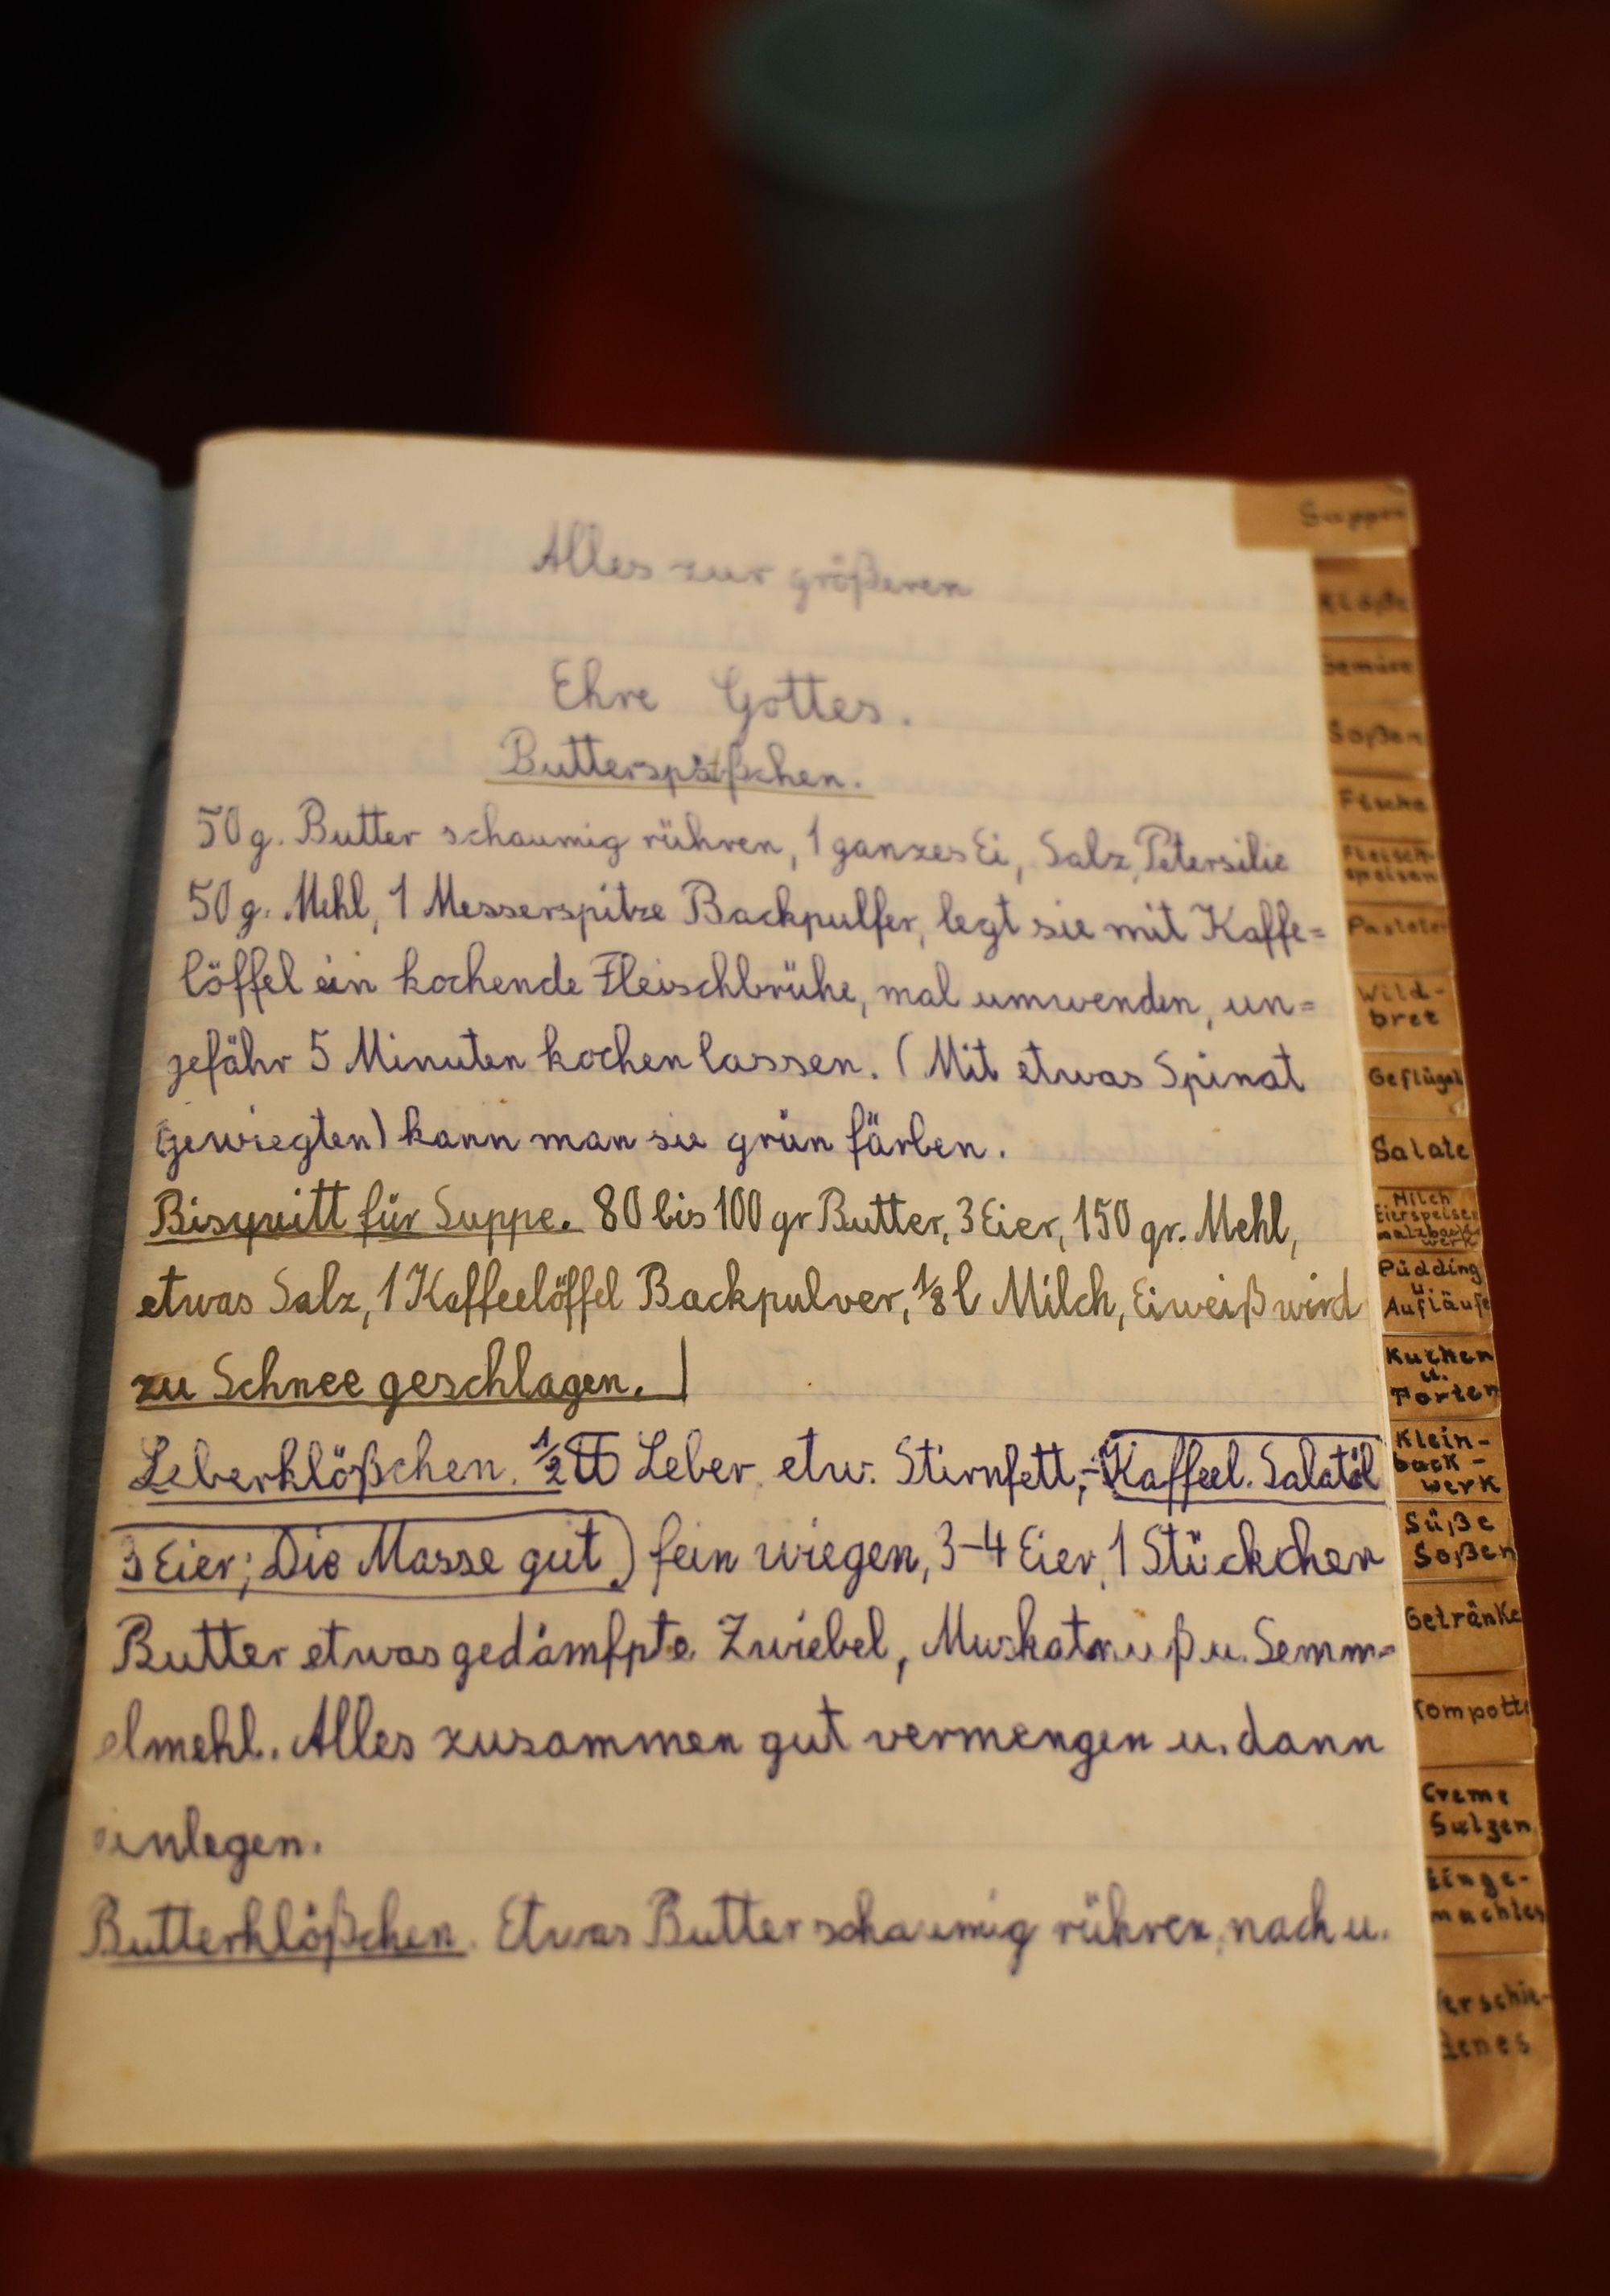 Alles zur größeren
Ehre Gottes.
Butterspätßchen.
50 g. Butter schaumig rühren, 1 ganzes Ei, Salz, Petersilie
50 g. Mehl, 1 Messerspitze Backpulfer, legt sie mit Kaffe=
löffel ein kochende Fleischbrühe, mal umwenden, un=
gefähr 5 Minuten kochen lassen. (Mit etwas Spinat
gewiegten) kann man sie grün färben.
Bisquitt für Suppe. 80 bis 100 gr Butter, 3 Eier, 150 gr. Mehl,
etwas Salz, 1 Kaffeelöffel Backpulver, 1/8 l Milch, Eiweiß wird
zu Schnee geschlagen.
Leberklößchen. 1/2 ℔ Leber, etw. Stirnfett, Kaffeel. Salatöl
3 Eier; Die Masse gut) fein wiegen, 3-4 Eier, 1 Stückchen
Butter etwas gedämfpte Zwiebel, Muskatnuß u. Semm=
elmehl. Alles zusammen gut vermengen u. dann
einlegen.
Butterklößchen. Etwas Butter schaumig rühren, nach u.
Suppen
Klöße
Gemüse
Soßen
Fische
Fleisch-
speisen
Pasteten
Wild-
bret
Geflügel
Salate
Milch
Eierspeisen
Salzback
werk
Pudding
u.
Aufläufe
Kuchen
u.
Torten
Klein-
back-
werk
Süße
Soßen
Getränke
Kompotte
Creme
Sulzen
Einge-
machtes
Verschie-
denes